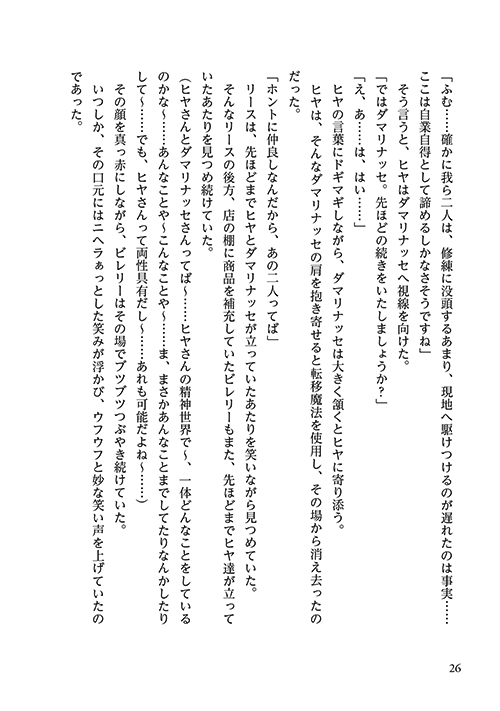 「ふむ……確かに我ら二人は、修練に没頭するあまり、現地へ駆けつけるのが遅れたのは事実……
ここは自業自得として諦めるしかなさそうですね」
そう言うと、ヒヤはダマリナッセへ視線を向けた。
「ではダマリナッセ。先ほどの続きをいたしましょうか？」
「え、あ……は、はい……」
ヒヤの言葉にドギマギしながら、ダマリナッセは大きく頷くとヒヤに寄り添う。
ヒヤは、そんなダマリナッセの肩を抱き寄せると転移魔法を使用し、その場から消え去ったの
だった。
「ホントに仲良しなんだから、あの二人ってば」
リースは、先ほどまでヒヤとダマリナッセが立っていたあたりを笑いながら見つめていた。
そんなリースの後方、店の棚に商品を補充していたビレリーもまた、先ほどまでヒヤ達が立って
いたあたりを見つめ続けていた。
（ヒヤさんとダマリナッセさんってば～……ヒヤさんの精神世界で～、一体どんなことをしている
のかな～……あんなことや～こんなことや～……ま、まさかあんなことまでしてたりなんかしたり
して～……でも、ヒヤさんって両性具有だし～……あれも可能だよね～……）
その顔を真っ赤にしながら、ビレリーはその場でブツブツつぶやき続けていた。
いつしか、その口元にはニヘラぁっとした笑みが浮かび、ウフウフと妙な笑い声を上げていたの
であった。
26